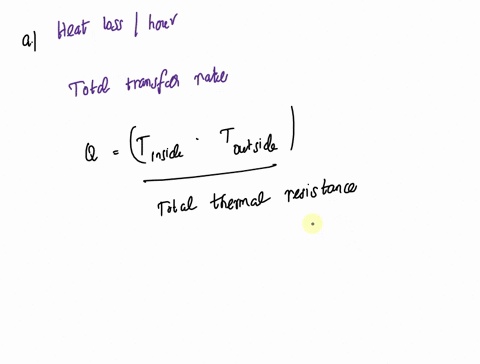 a) Heat loss | hour
Total transfer rate
Q = (T inside · T outside)
Total thermal resistance